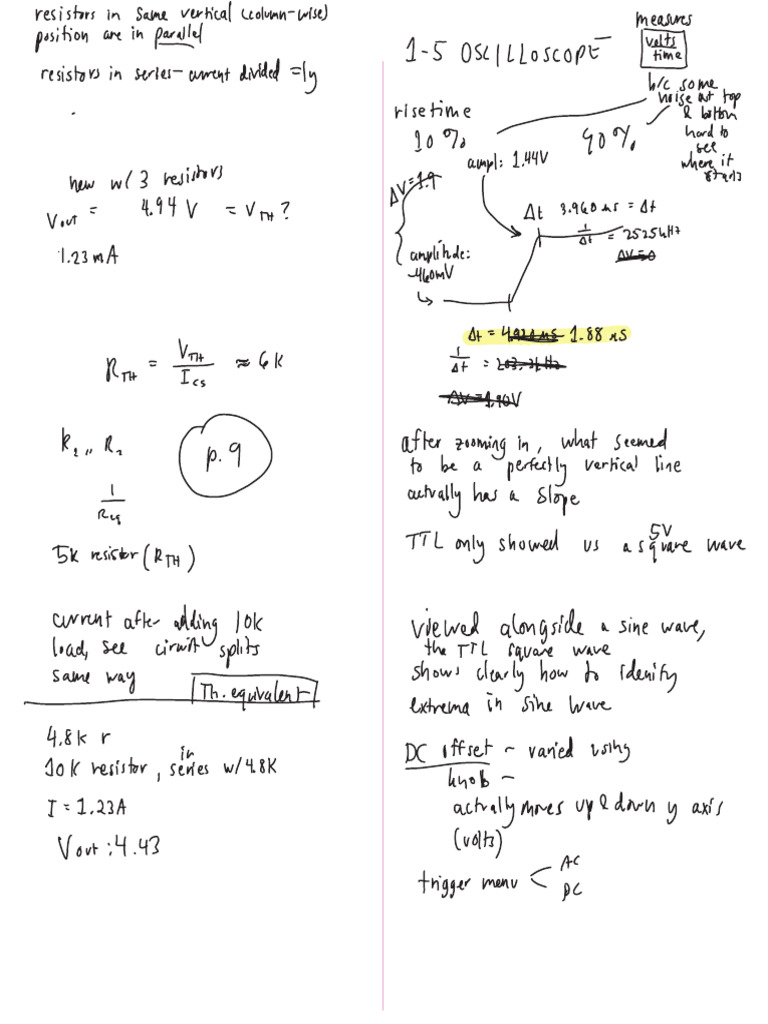 resistors in same vertical (column-wise)
position are in parallel
resistors in series - current divided = ly
new w/ 3 resistors
Vout = 4.94 V = VTH ?
1.23 mA
RTH = VTH / Ics ≈ 6K
R2 ,, R2
p. 9
1 / Req
5k resistor (RTH)
current after adding 10k
load, see circuit splits
same way
Th. equivalent
4.8k r
10K resistor, in series w/ 4.8K
I = 1.23A
Vout : 4.43
measures
volts
time
1-5 OSCILLOSCOPE
b/c some
noise at top
& bottom
hard to
see
where it
starts
risetime
10% 90%
ampl: 1.44V
ΔV = 1.9
Δt 3.960 ms = Δt
1/Δt = 252.5 kHz
ΔV=0
amplitude:
-460mV
Δt = 1.88 ns
1/Δt =
ΔV = 1.90V
after zooming in, what seemed
to be a perfectly vertical line
actually has a slope
TTL only showed us a 5V square wave
viewed alongside a sine wave,
the TTL square wave
shows clearly how to idenify
extrema in sine wave
DC offset - varied using
knob -
actually moves up & down y axis
(volts)
trigger menu < AC
DC